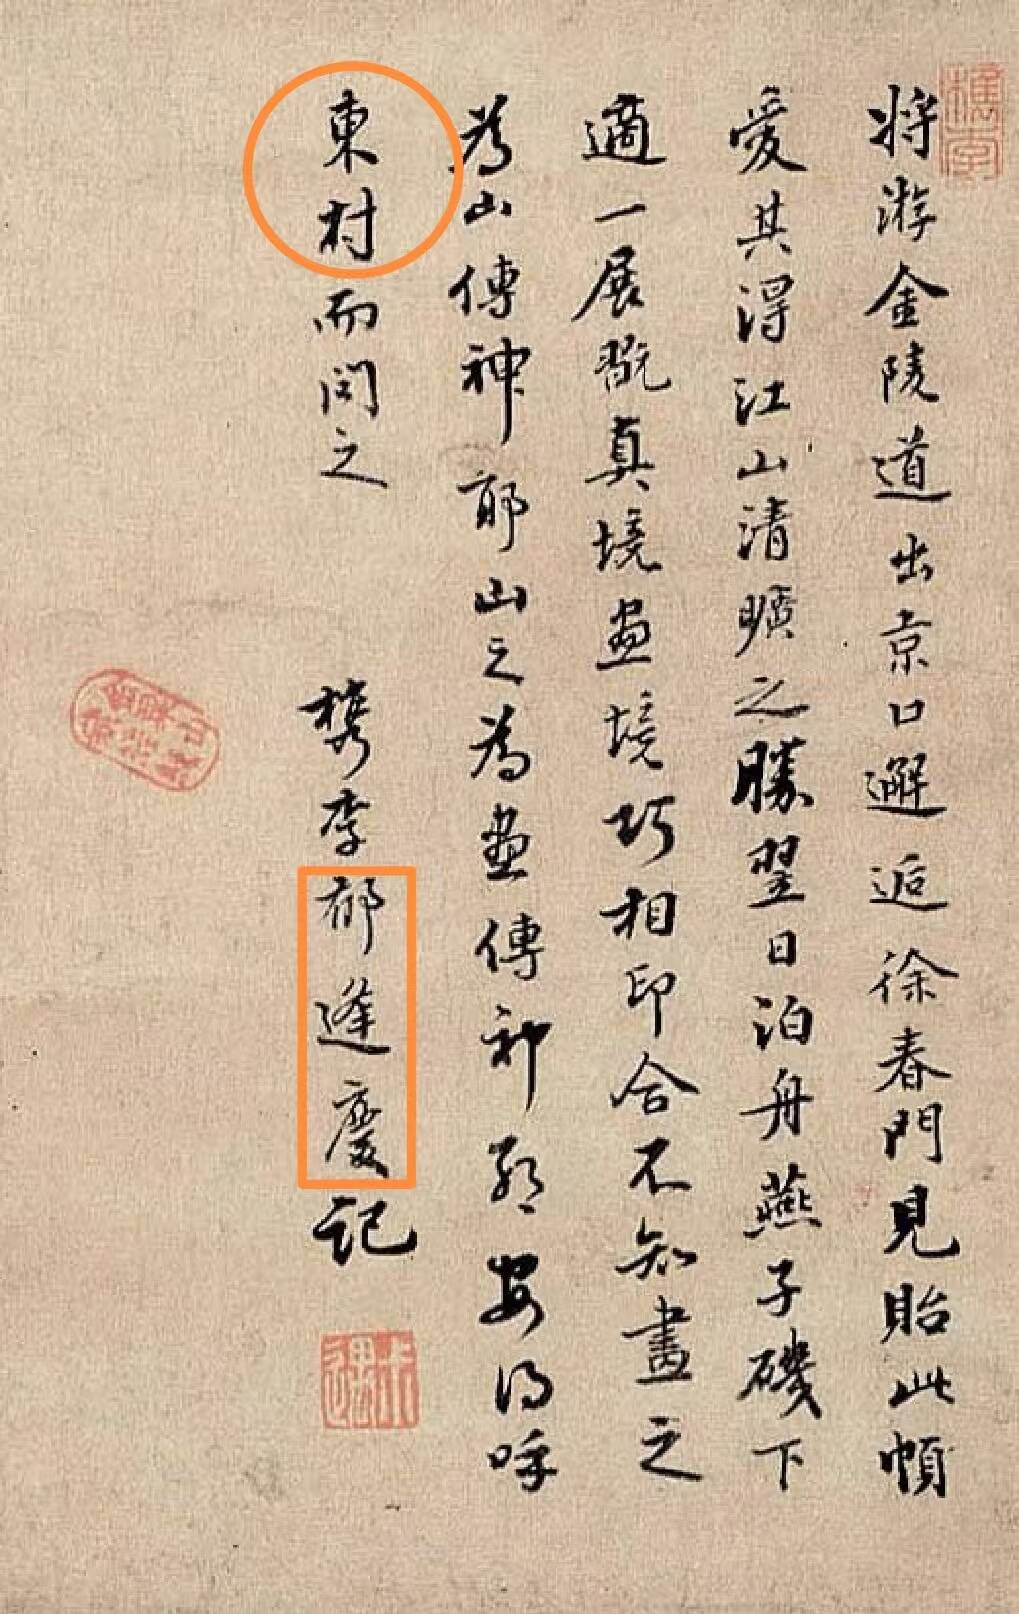 将游金陵道出京口邂逅徐春門見貽此幀
愛其得江山清曠之勝翌日泊舟燕子磯下
適一展翫真境畫境巧相印合不知畫之
為山傳神耶山之為畫傳神耶安得呼
東村而問之
檇李郁逢慶記
檇李